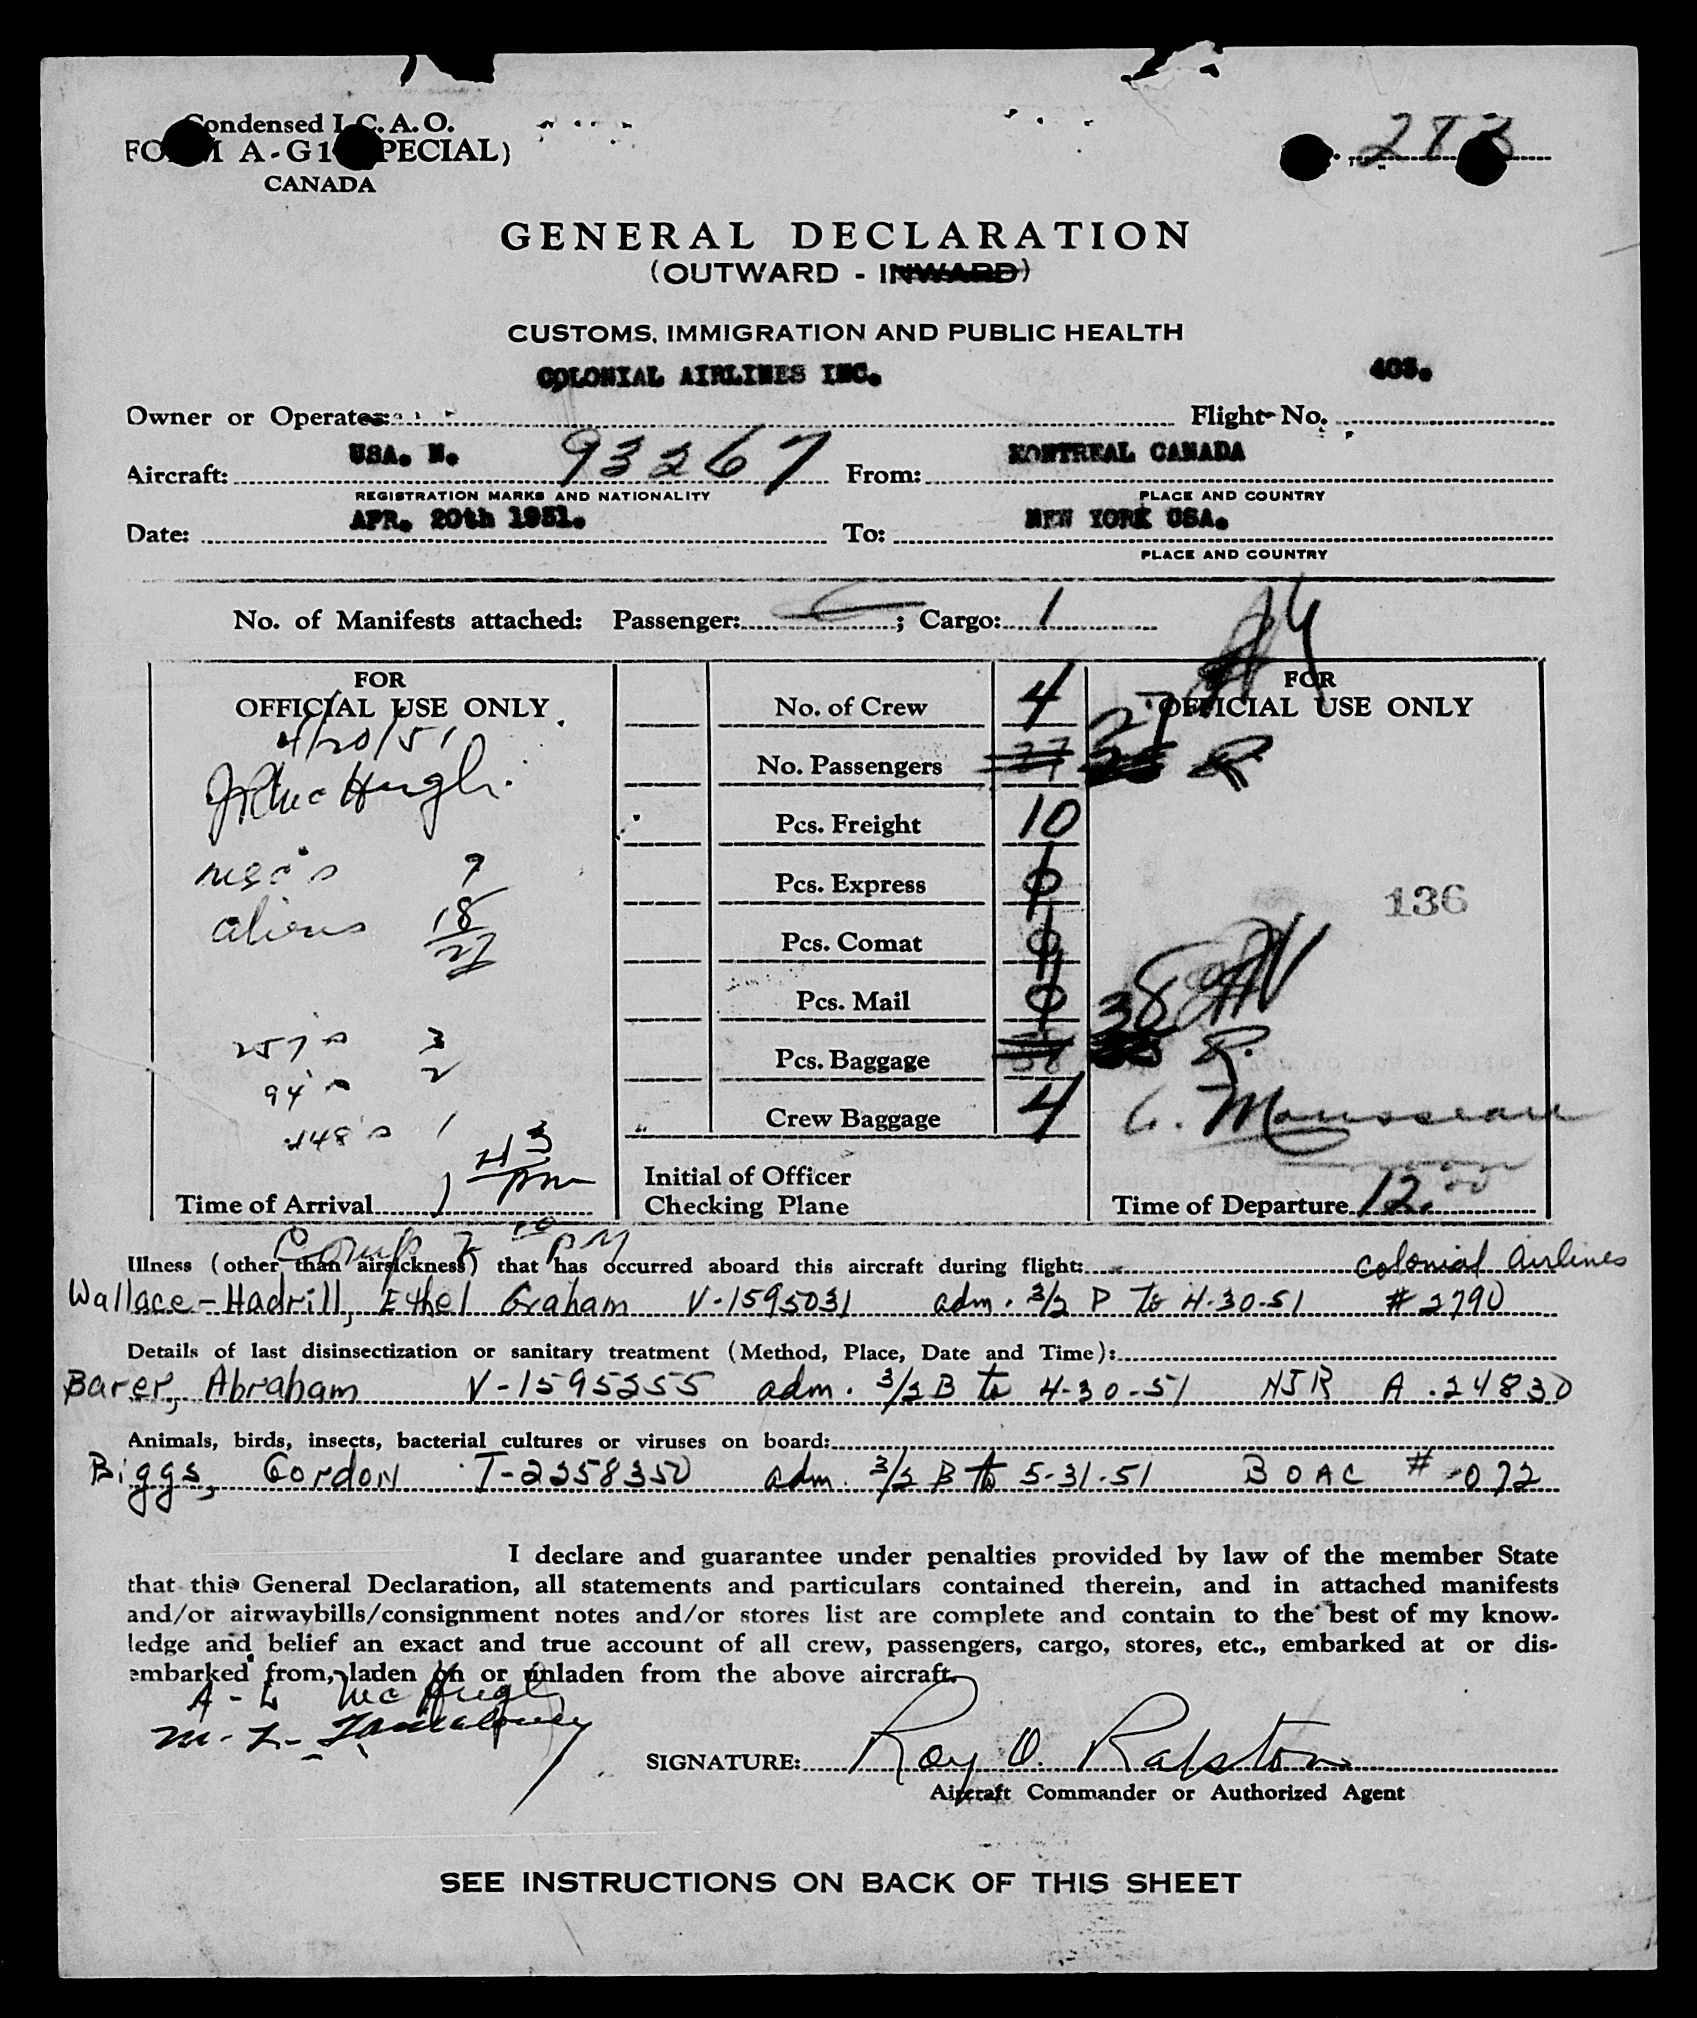 Condensed I.C.A.O.
FORM A-G1 (SPECIAL)
CANADA
283
GENERAL DECLARATION
(OUTWARD - INWARD)
CUSTOMS, IMMIGRATION AND PUBLIC HEALTH
COLONIAL AIRLINES INC. 403.
Owner or Operator: Flight No.
USA. N. 93267 MONTREAL CANADA
Aircraft: From:
REGISTRATION MARKS AND NATIONALITY PLACE AND COUNTRY
APR. 20th 1951. NEW YORK USA.
Date: To:
PLACE AND COUNTRY
No. of Manifests attached: Passenger: ; Cargo: 1
FOR
OFFICIAL USE ONLY
4/20/51
McHugh
9
aliens 18
27
257's 3
94's 2
448's 1
43
Time of Arrival 1 pm
No. of Crew 4
No. Passengers 27 27 R
Pcs. Freight 10
Pcs. Express 0
Pcs. Comat 0
Pcs. Mail 0
Pcs. Baggage 38
Crew Baggage 4
Initial of Officer
Checking Plane
FOR
OFFICIAL USE ONLY
136
R.
Mousseau
Time of Departure 12.00
Comp 2 10 PM
Illness (other than airsickness) that has occurred aboard this aircraft during flight: Colonial Airlines
Wallace-Hadrill, Ethel Graham V-1595031 adm. 3/2 P to 4-30-51 # 2790
Details of last disinsectization or sanitary treatment (Method, Place, Date and Time):
Barer, Abraham V-1595255 adm. 3/2 B to 4-30-51 NJR A.24830
Animals, birds, insects, bacterial cultures or viruses on board:
Biggs, Gordon T-2358350 adm. 3/2 B to 5-31-51 BOAC # 072
I declare and guarantee under penalties provided by law of the member State
that this General Declaration, all statements and particulars contained therein, and in attached manifests
and/or airwaybills/consignment notes and/or stores list are complete and contain to the best of my know-
ledge and belief an exact and true account of all crew, passengers, cargo, stores, etc., embarked at or dis-
embarked from, laden on or unladen from the above aircraft.
A-L McHugh
M. L.
SIGNATURE: Roy O. Ralston
Aircraft Commander or Authorized Agent
SEE INSTRUCTIONS ON BACK OF THIS SHEET